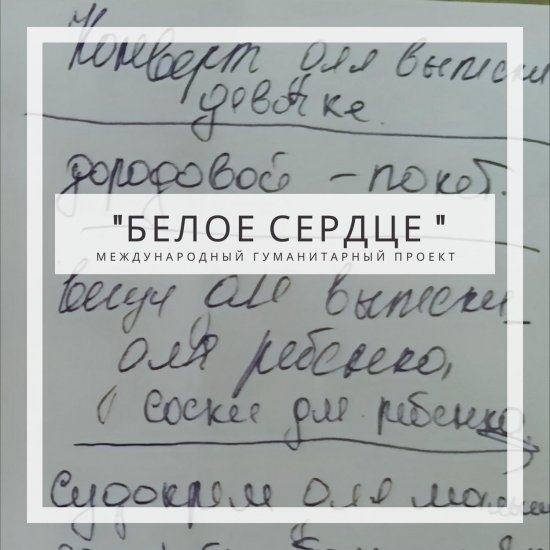 Конверт для выписки
девочке.
дородовой - покет.
"БЕЛОЕ СЕРДЦЕ "
МЕЖДУНАРОДНЫЙ ГУМАНИТАРНЫЙ ПРОЕКТ
для выписки
для ребенка,
соски для ребенка
Судокрем для малыш